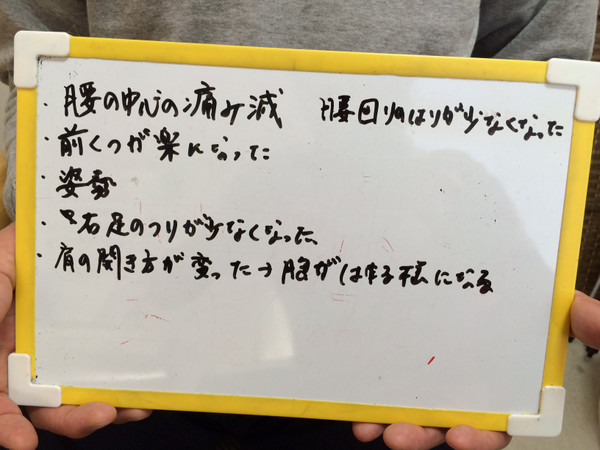 ・腰の中心の痛み減 腰回りのはりが少なくなった
・前くつが楽になった
・姿勢
・右足のつりが少なくなった
・肩の開き方が変った→胸がはれる様になる